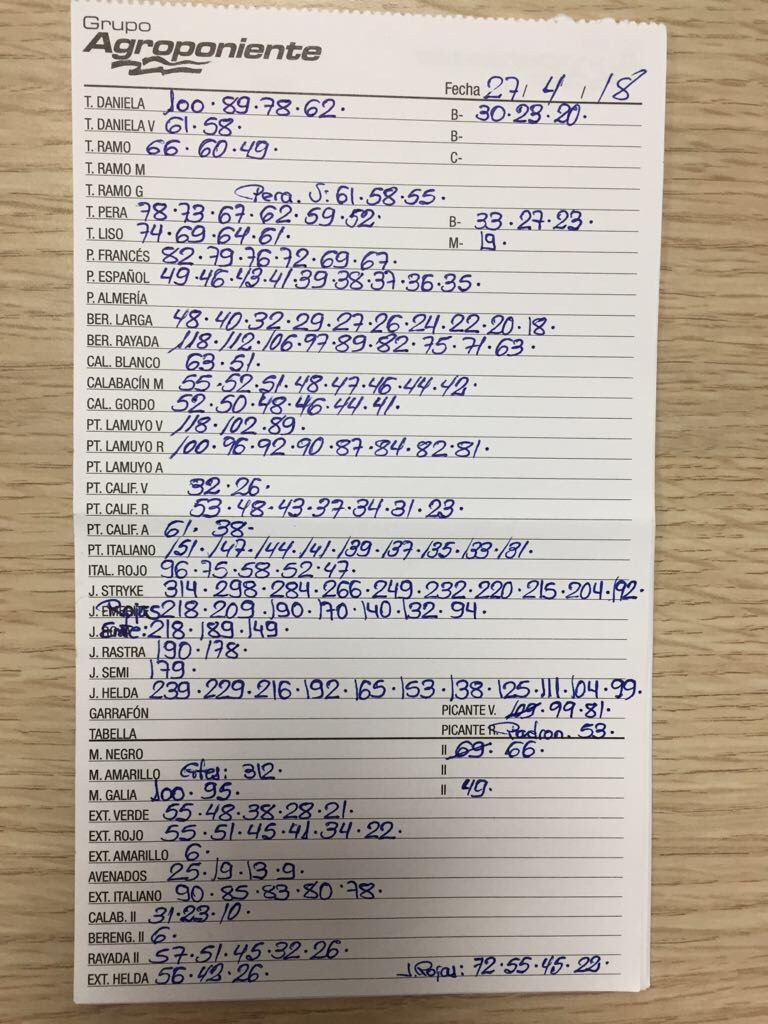 Grupo
Agroponiente
Fecha 27 / 4 / 18
T. DANIELA 100·89·78·62· B- 30·23·20·
T. DANIELA V 61·58· B-
T. RAMO 66·60·49· C-
T. RAMO M
T. RAMO G Pera. S: 61·58·55·
T. PERA 78·73·67·62·59·52· B- 33·27·23·
T. LISO 74·69·64·61· M- 19·
P. FRANCÉS 82·79·76·72·69·67·
P. ESPAÑOL 49·46·43·41·39·38·37·36·35·
P. ALMERÍA
BER. LARGA 48·40·32·29·27·26·24·22·20·18·
BER. RAYADA 118·112·106·97·89·82·75·71·63·
CAL. BLANCO 63·51·
CALABACÍN M 55·52·51·48·47·46·44·42·
CAL. GORDO 52·50·48·46·44·41·
PT. LAMUYO V 118·102·89·
PT. LAMUYO R 100·96·92·90·87·84·82·81·
PT. LAMUYO A
PT. CALIF. V 32·26·
PT. CALIF. R 53·48·43·37·34·31·23·
PT. CALIF. A 61· 38-
PT. ITALIANO 151·147·144·141·139·137·135·133·131·
ITAL. ROJO 96·75·58·52·47·
J. STRYKE 314·298·284·266·249·232·220·215·204·192·
J. Rojas 218·209·190·170·140·132·94·
J. 218·189·149·
J. RASTRA 190·178·
J. SEMI 179·
J. HELDA 239·229·216·192·165·153·138·125·111·104·99·
GARRAFÓN PICANTE V. 109·99·81·
TABELLA PICANTE R. Padron. 53·
M. NEGRO II 69· 66·
M. AMARILLO 312· II
M. GALIA 100·95· II 49·
EXT. VERDE 55·48·38·28·21·
EXT. ROJO 55·51·45·41·34·22·
EXT. AMARILLO 6·
AVENADOS 25·19·13·9·
EXT. ITALIANO 90·85·83·80·78·
CALAB. II 31·23·10·
BERENG. II 6·
RAYADA II 57·51·45·32·26·
EXT. HELDA 56·42·26· J. Rojas: 72·55·45·22·